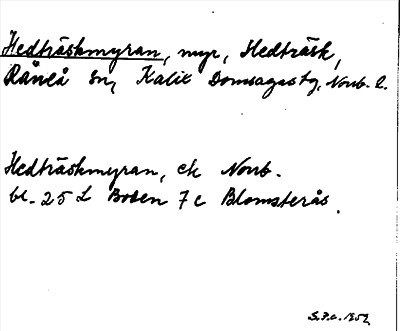 Hedträskmyran, myr, Hedträsk,
Råneå sn, Kalix Domsagas tg, Norrb. l.
Hedträskmyran, ek Norrb.
bl. 25 L Boden 7 c Blomsterås.